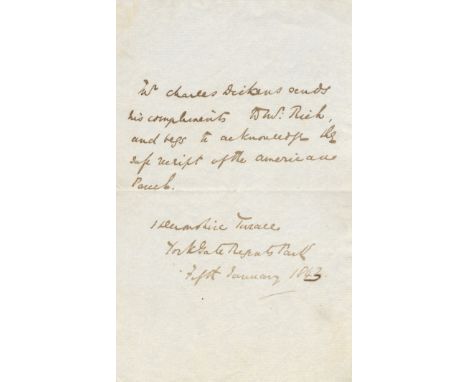 Mr Charles Dickens sends
his compliments to Mr. Rich,
and begs to acknowledge the
safe receipt of the american
Parcel.
1 Devonshire Terrace
York Gate Regents Park
Fifth January 1843